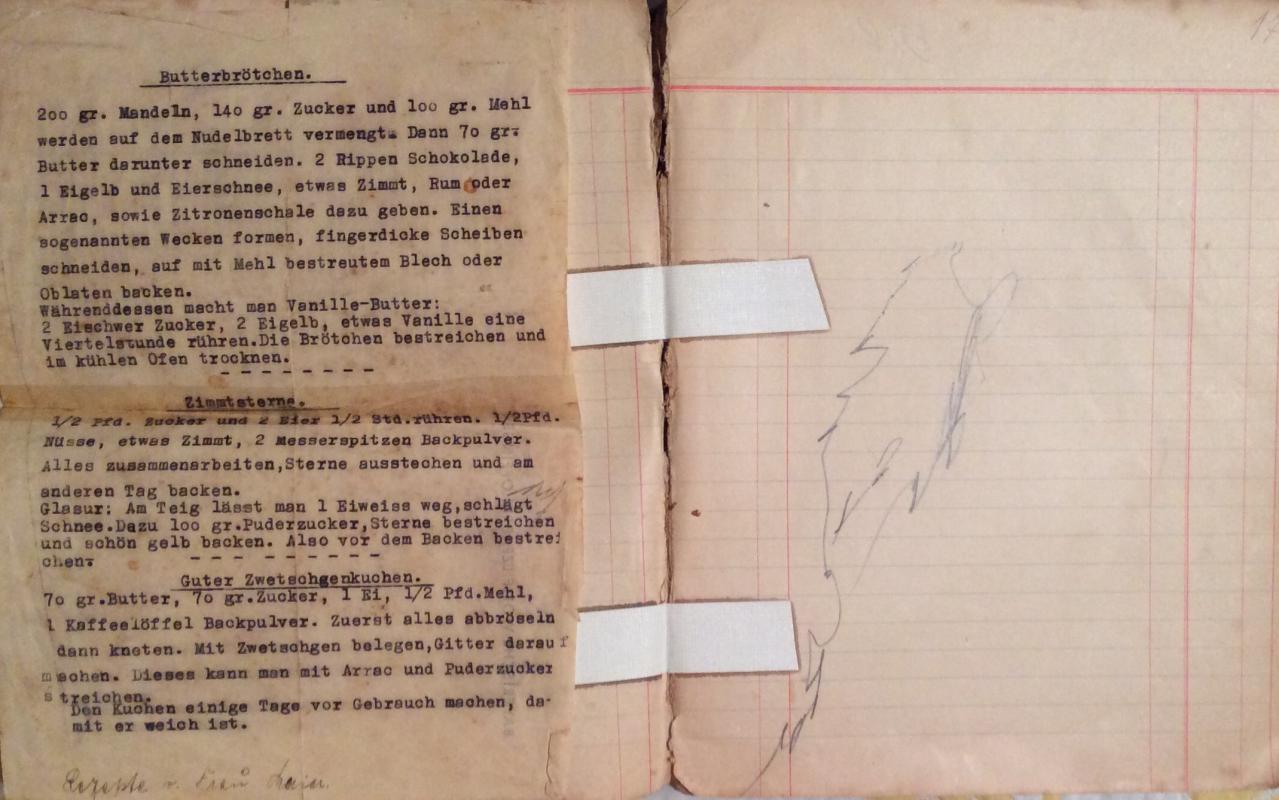 Butterbrötchen.
200 gr. Mandeln, 140 gr. Zucker und 100 gr. Mehl
werden auf dem Nudelbrett vermengt. Dann 70 gr.
Butter darunter schneiden. 2 Rippen Schokolade,
1 Eigelb und Eierschnee, etwas Zimmt, Rum oder
Arrac, sowie Zitronenschale dazu geben. Einen
sogenannten Wecken formen, fingerdicke Scheiben
schneiden, auf mit Mehl bestreutem Blech oder
Oblaten backen.
Währenddessen macht man Vanille-Butter:
2 Eischwer Zucker, 2 Eigelb, etwas Vanille eine
Viertelstunde rühren.Die Brötchen bestreichen und
im kühlen Ofen trocknen.
- - - - - - - -
Zimmtsterne.
1/2 Pfd. Zucker und 2 Eier 1/2 Std.rühren. 1/2Pfd.
Nüsse, etwas Zimmt, 2 Messerspitzen Backpulver.
Alles zusammenarbeiten,Sterne ausstechen und am
anderen Tag backen.
Glasur: Am Teig lässt man 1 Eiweiss weg,schlägt
Schnee.Dazu 100 gr.Puderzucker,Sterne bestreichen
und schön gelb backen. Also vor dem Backen bestrei
chen.
- - - - - - - -
Guter Zwetschgenkuchen.
70 gr.Butter, 70 gr.Zucker, 1 Ei, 1/2 Pfd.Mehl,
1 Kaffeelöffel Backpulver. Zuerst alles abbröseln
dann kneten. Mit Zwetschgen belegen,Gitter darauf
machen. Dieses kann man mit Arrac und Puderzucker
streichen.
Den Kuchen einige Tage vor Gebrauch machen, da-
mit er weich ist.
Rezepte v. Frau